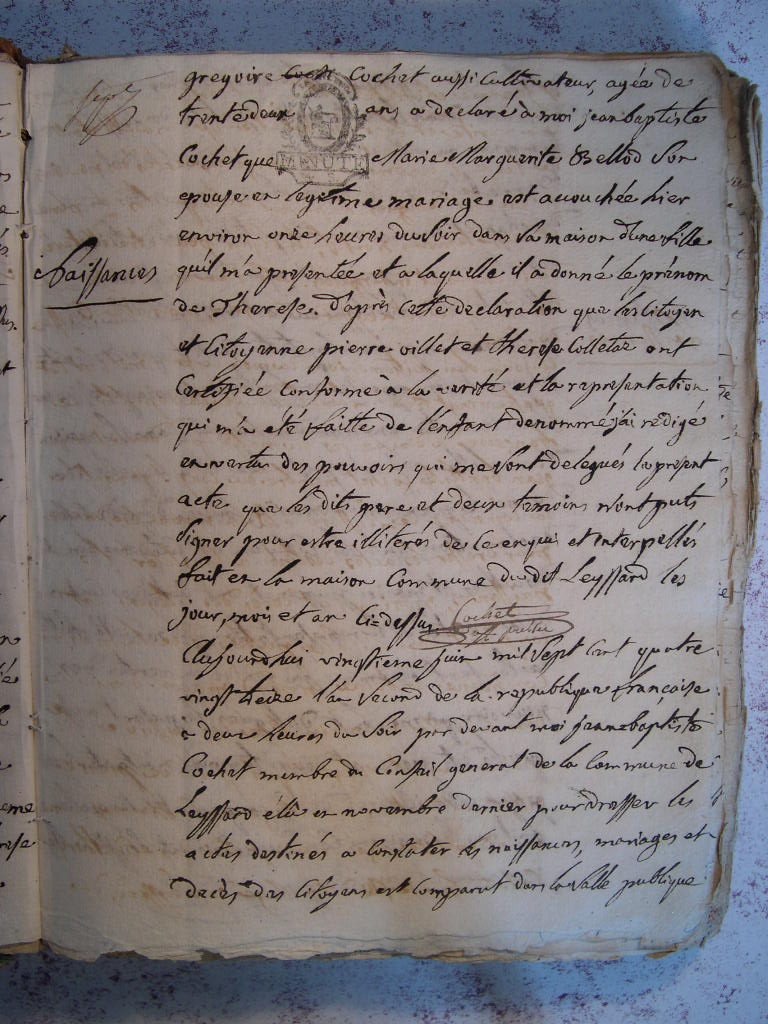 gregoire Cochet aussi Cultivateur, agée de
trente deux ans a declaré à moi jean baptiste
MINUTE
Cochet que Marie Marguerite Bellod Son
epouse en legitime mariage est accouchée hier
environ onze heures du Soir dans Sa maison d'une fille
Naissances
qu'il m'a presentée et a laquelle il a donné le prénom
de Therese. d'après Cette declaration que les Citoyen
et Citoyenne pierre villet et therese Colletaz ont
Certifiée Conforme à la verité et la representation
qui m'a été faitte de l'enfant denommé j'ai redigé
en vertu des pouvoirs qui me Sont delegués le present
acte que les dits pere et deux temoins n'ont puts
Signer pour estre illiterés de Ce enquis et interpellés
fait en la maison Commune du dit Leyssard les
jour, mois et an Ci=dessus Cochet
off. public
Aujourdhui vingtieme juin mil Sept Cent quatre
vingt treize l'an Second de la republique française
à deux heures du Soir par devant moi jean=baptiste
Cochet membre du Conseil general de la Commune de
Leyssard élû en novembre dernier pour dresser les
actes destinés a Constater les naissances, mariages et
decès des Citoyens est Comparut dans la Salle publique